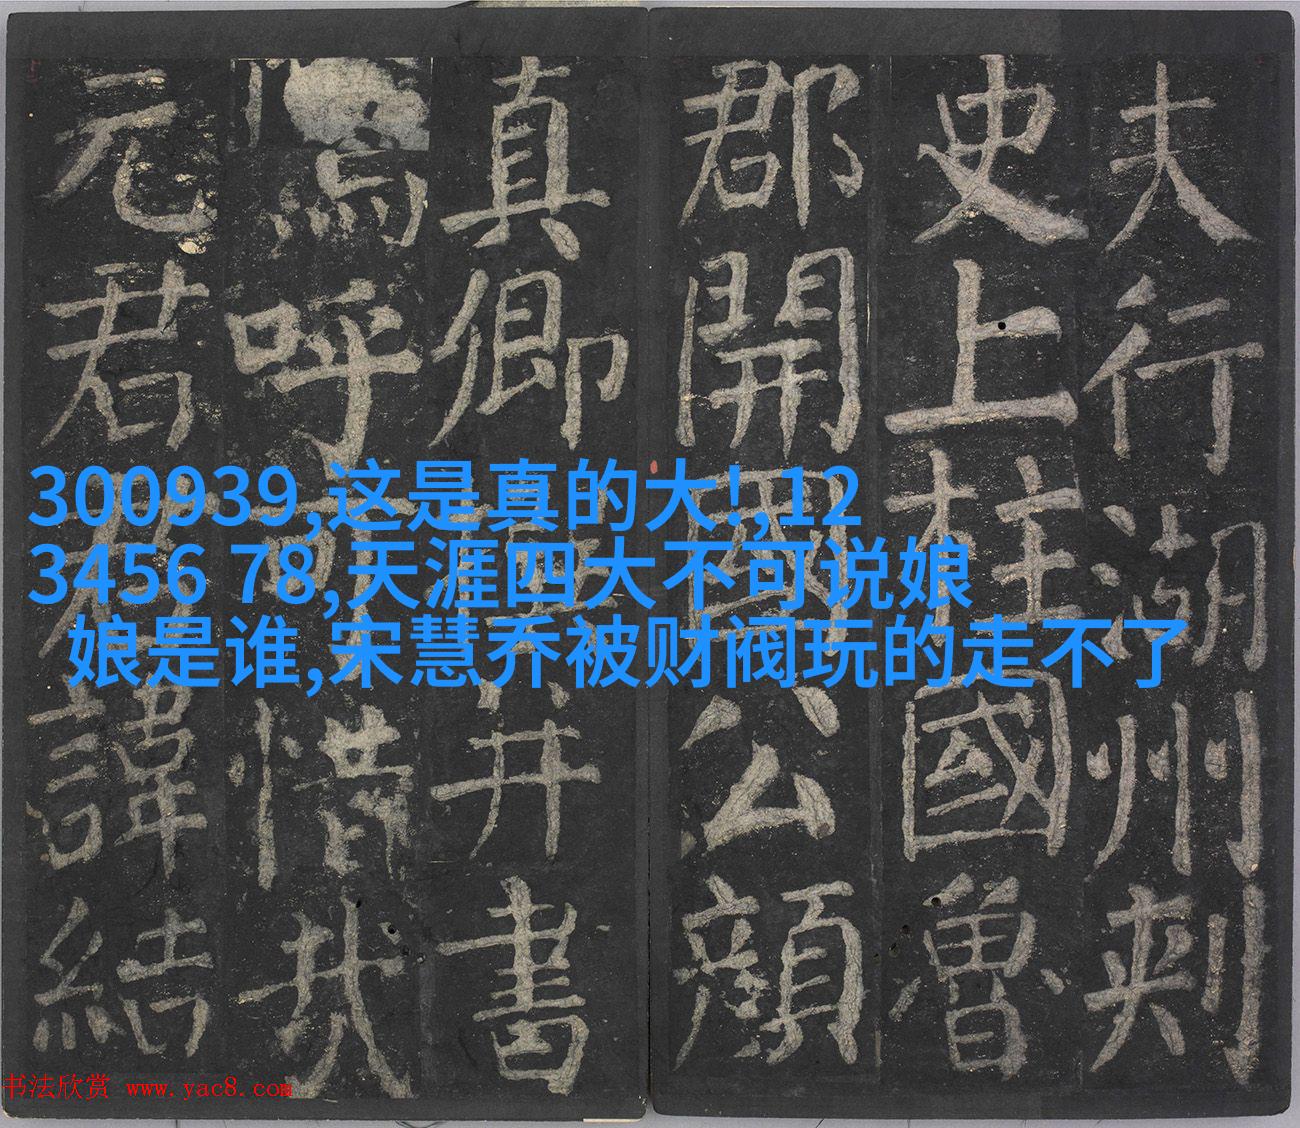 300939,这是真的大!,12
3456 78,天涯四大不可说娘
娘是谁,宋慧乔被财阀玩的走不了
夫行湖州刺
史上柱國魯
郡開國公顏
真卿并書
嗚呼可惜哉
元君君諱結
书法欣赏 www.yac8.com